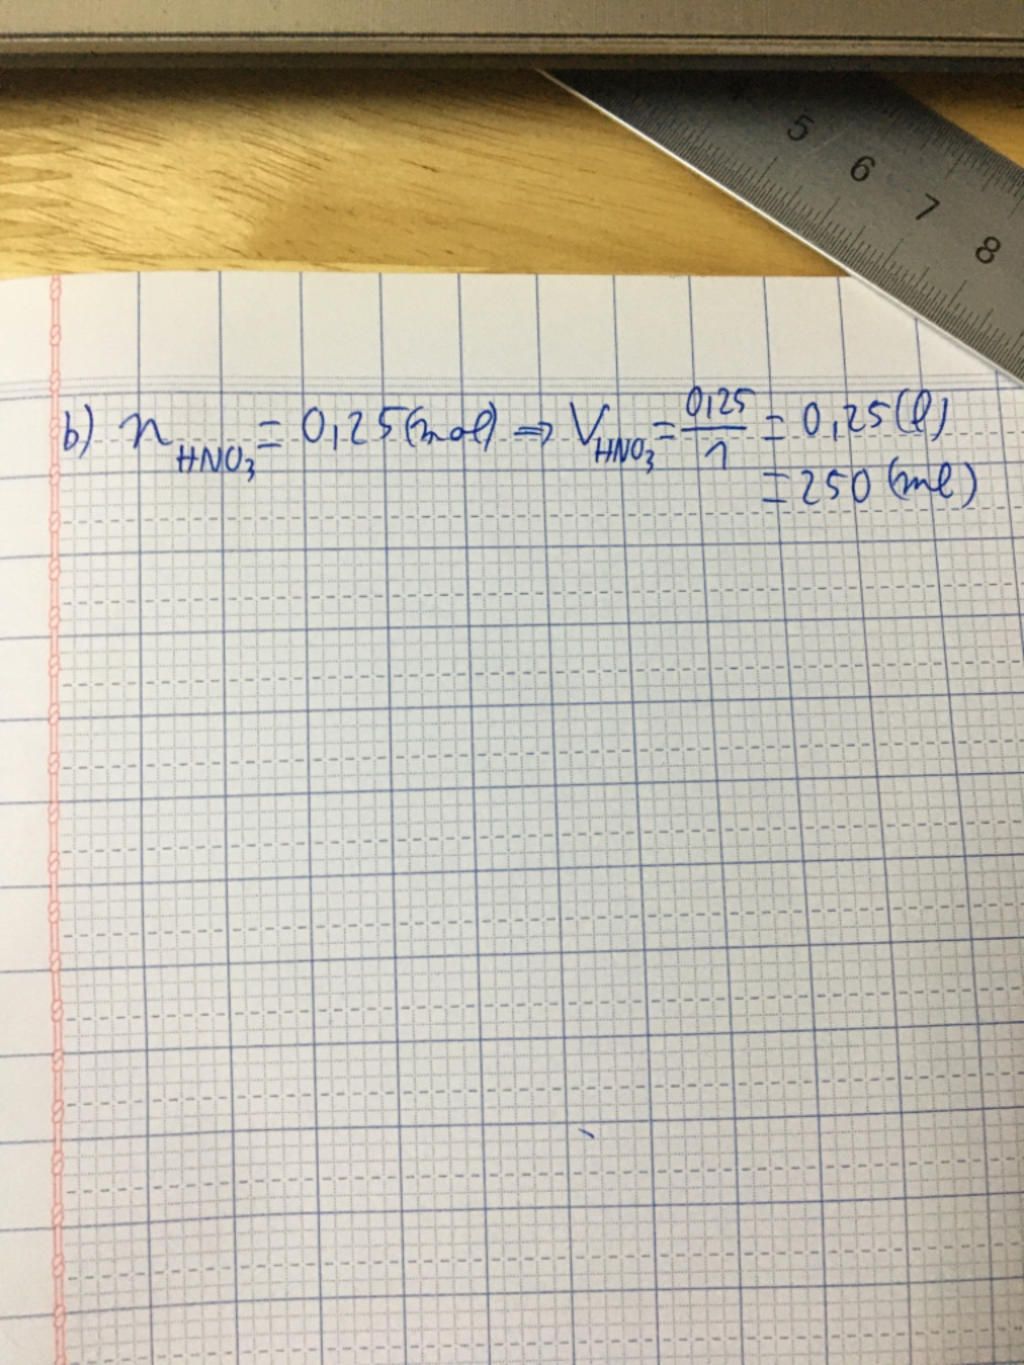 5 6 7 8
b) n HNO₃ = 0,25 (mol) ⇒ V HNO₃ = 0,25/1 = 0,25 (l)
= 250 (ml)